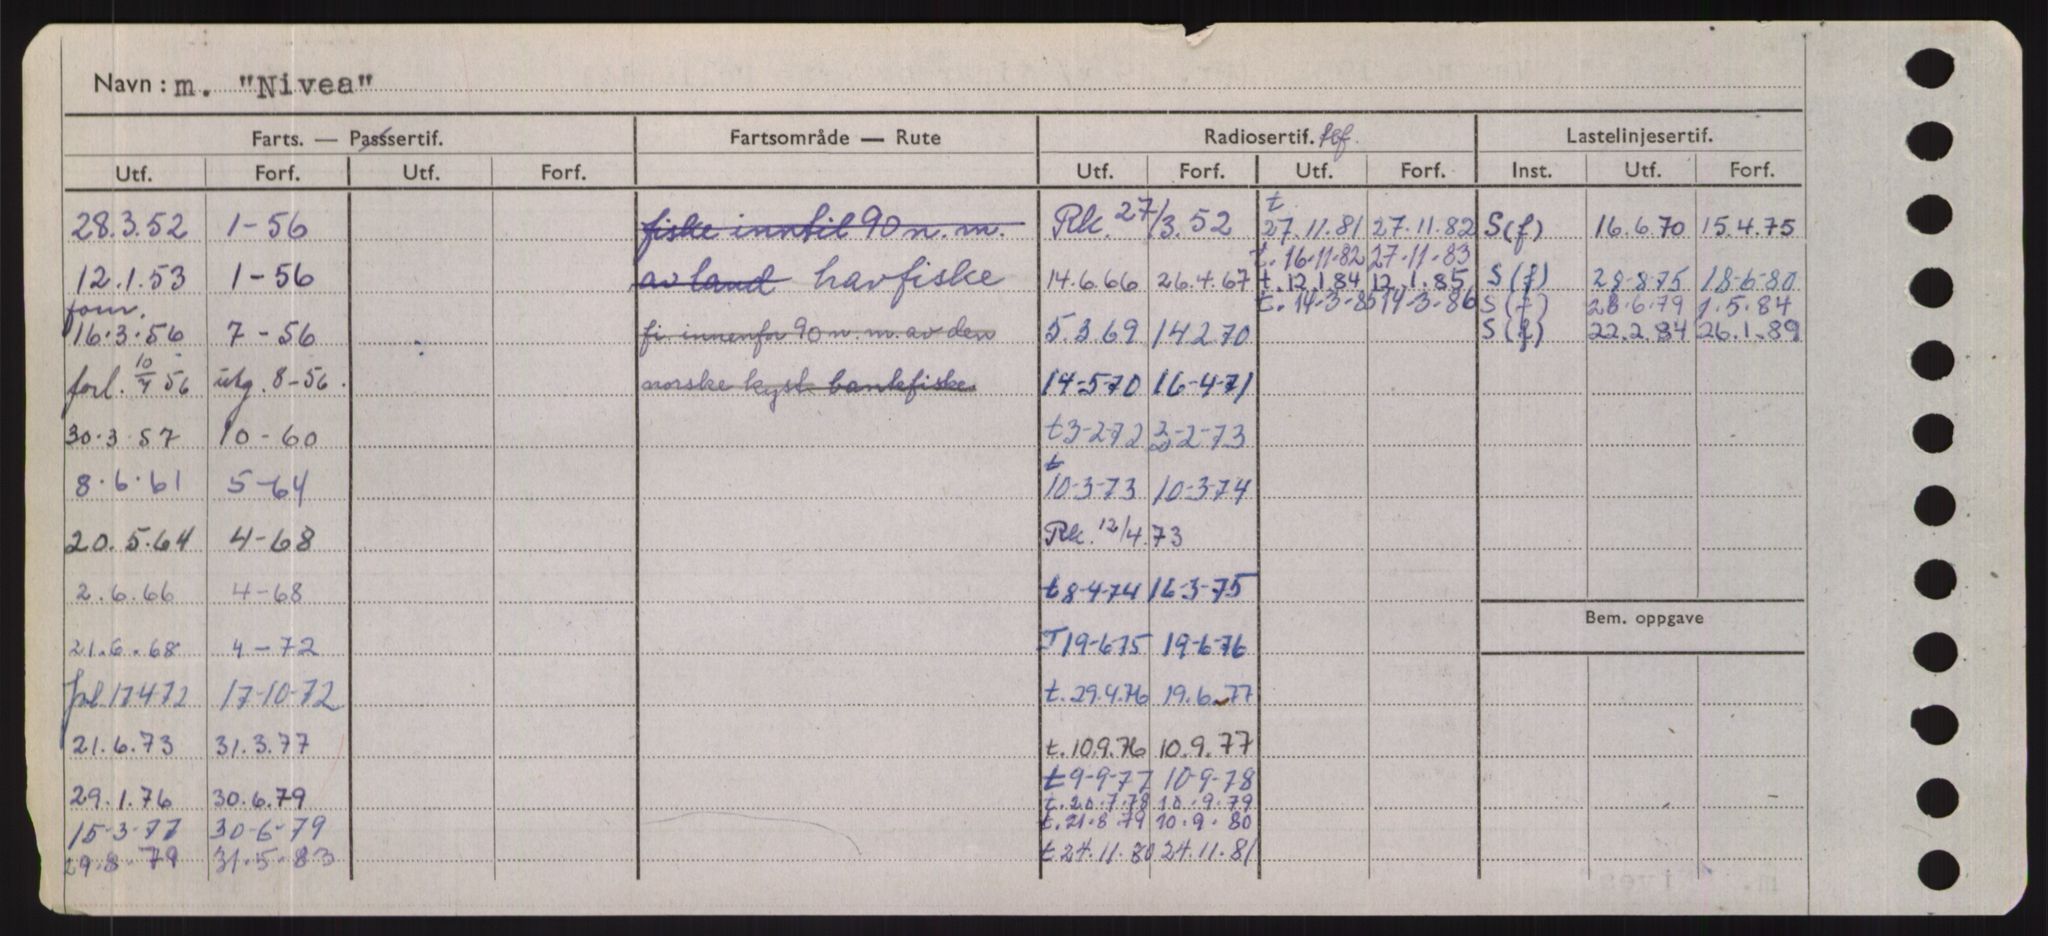 Navn: m. "Nivea"
Farts. — Passsertif. Fartsområde — Rute Radiosertif. Lastelinjesertif.
Utf. Forf. Utf. Forf. Utf. Forf. Utf. Forf. Inst. Utf. Forf.
28.3.52 1-56 fiske inntil 90 n.m. Rk. 27/3.52 t 27.11.81 27.11.82 S(f) 16.6.70 15.4.75
t. 16-11-82 27-11-83
12.1.53 1-56 av land havfiske 14.6.66 26.4.67 t. 12.1.84 12.1.85 S(f) 28-8-75 18-6-80
t. 14-3-85 14-3-86 S(f) 28.6.79 1.5.84
forn. 16.3.56 7-56 fi innenfor 90 n.m. av den 5.3.69 14.2.70 S(f) 22.2.84 26.1.89
forl. 10/7 56 utg. 8-56. norske kyst bankfiske. 14-5-70 16-4-71
30.3.57 10-60 t 3-2-72 3-2-73
8.6.61 5-64 t 10-3-73 10-3-74
20.5.64 4-68 Rk. 12/4.73
2.6.66 4-68 t 8-4-74 16-3-75
21.6.68 4-72 T 19-6-75 19-6-76
forl. 17-4-72 17-10-72 t. 29.4.76 19.6.77
21.6.73 31.3.77 t. 10.9.76 10.9.77
t 9-9-77 10-9-78
29.1.76 30.6.79 t. 20.7.78 10.9.79
15-3-77 30-6-79 t. 21.8.79 10.9.80
29.8.79 31.5.83 t 24.11.80 24.11.81
Bem. oppgave